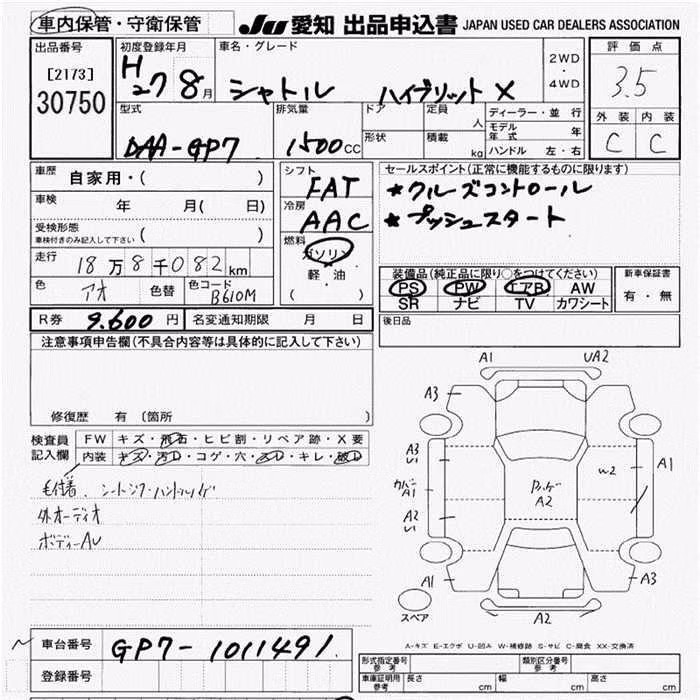 車内保管・守衛保管
JU 愛知 出品申込書 JAPAN USED CAR DEALERS ASSOCIATION
出品番号 初度登録年月 車名・グレード 2WD・4WD 評価点
[2173] 30750 H27 8月 シャトル ハイブリット X 3.5
型式 排気量 ドア 定員 人 ディーラー・並行 外装 内装
DAA-GP7 1500CC 形状 積載 kg モデル年式 年 C C
ハンドル 左・右
車歴 自家用・( ) シフト FAT セールスポイント(正常に機能するものに限ります)
車検 年 月( 日) 冷房 AAC ★クルーズコントロール
受検形態 ( ) ★プッシュスタート
車検付きのみ記入して下さい
走行 18万8千082km 燃料 ガソリン 軽・油 ( )
色 アオ 色替 色コード B610M
装備品(純正品に限り○をつけてください) 新車保証書
PS PW エアB AW 有・無
SR ナビ TV カワシート
R券 9.600円 名変通知期限 月 日 後日品
注意事項申告欄(不具合内容等は具体的に記入して下さい)
修復歴 有 〔箇所 〕
検査員記入欄 FW キズ・飛石・ヒビ割・リペア跡・X要
内装 キズ・汚レ・コゲ・穴・スレ・キレ・破レ
外オーディオ
ボディーAU
A1 UA2
A3
A3 U1
カバー A1
W2 A1
A2
A2 U1
A1 A3
スペア A2
A-キズ E-エクボ U-凹み W-補修跡 S-サビ C-腐食 XX-交換済
車台番号 GP7-1011491.
登録番号
形式指定番号 参考 類別区分番号 参考
車庫証明用 参考 長さ cm 幅 cm 高さ cm